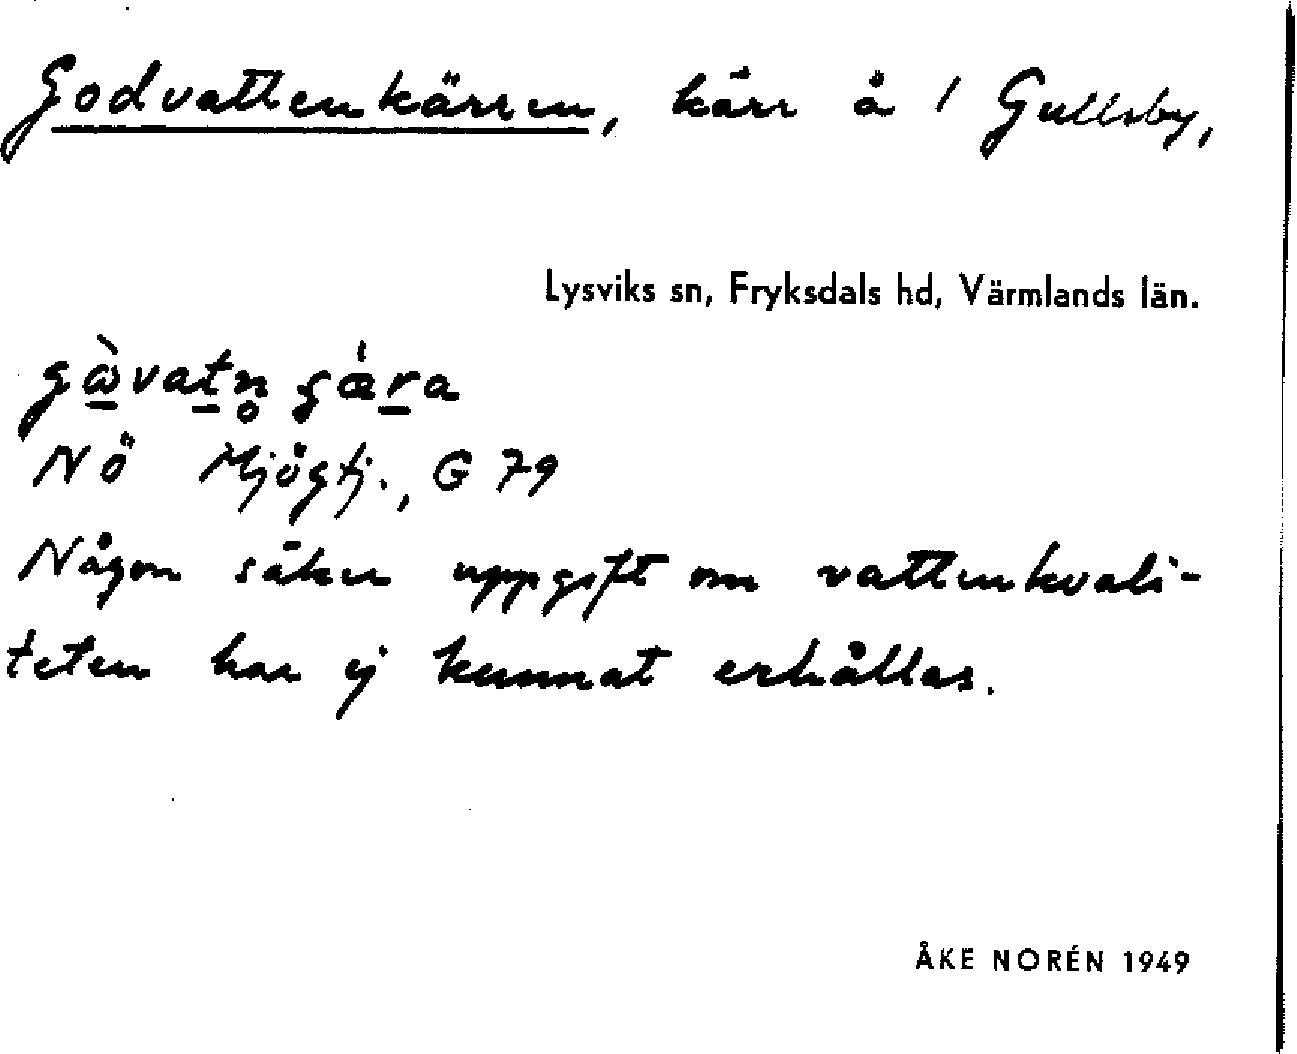 Godvattenkärren, kärr å 1 Gullsby,
Lysviks sn, Fryksdals hd, Värmlands län.
gὼvatn̥ ʂæ̀ra
NÖ Mjögtj., G 79
Någon säker uppgift om vattenkvali-
teten har ej kunnat erhållas.
ÅKE NORÉN 1949